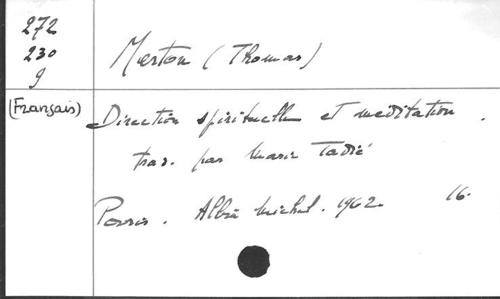 272
230
9
Merton (Thomas)
(Français)
Direction spirituelle et meditation.
trad. par Marie Tadié
Paris. Albin Michel. 1962. 16.